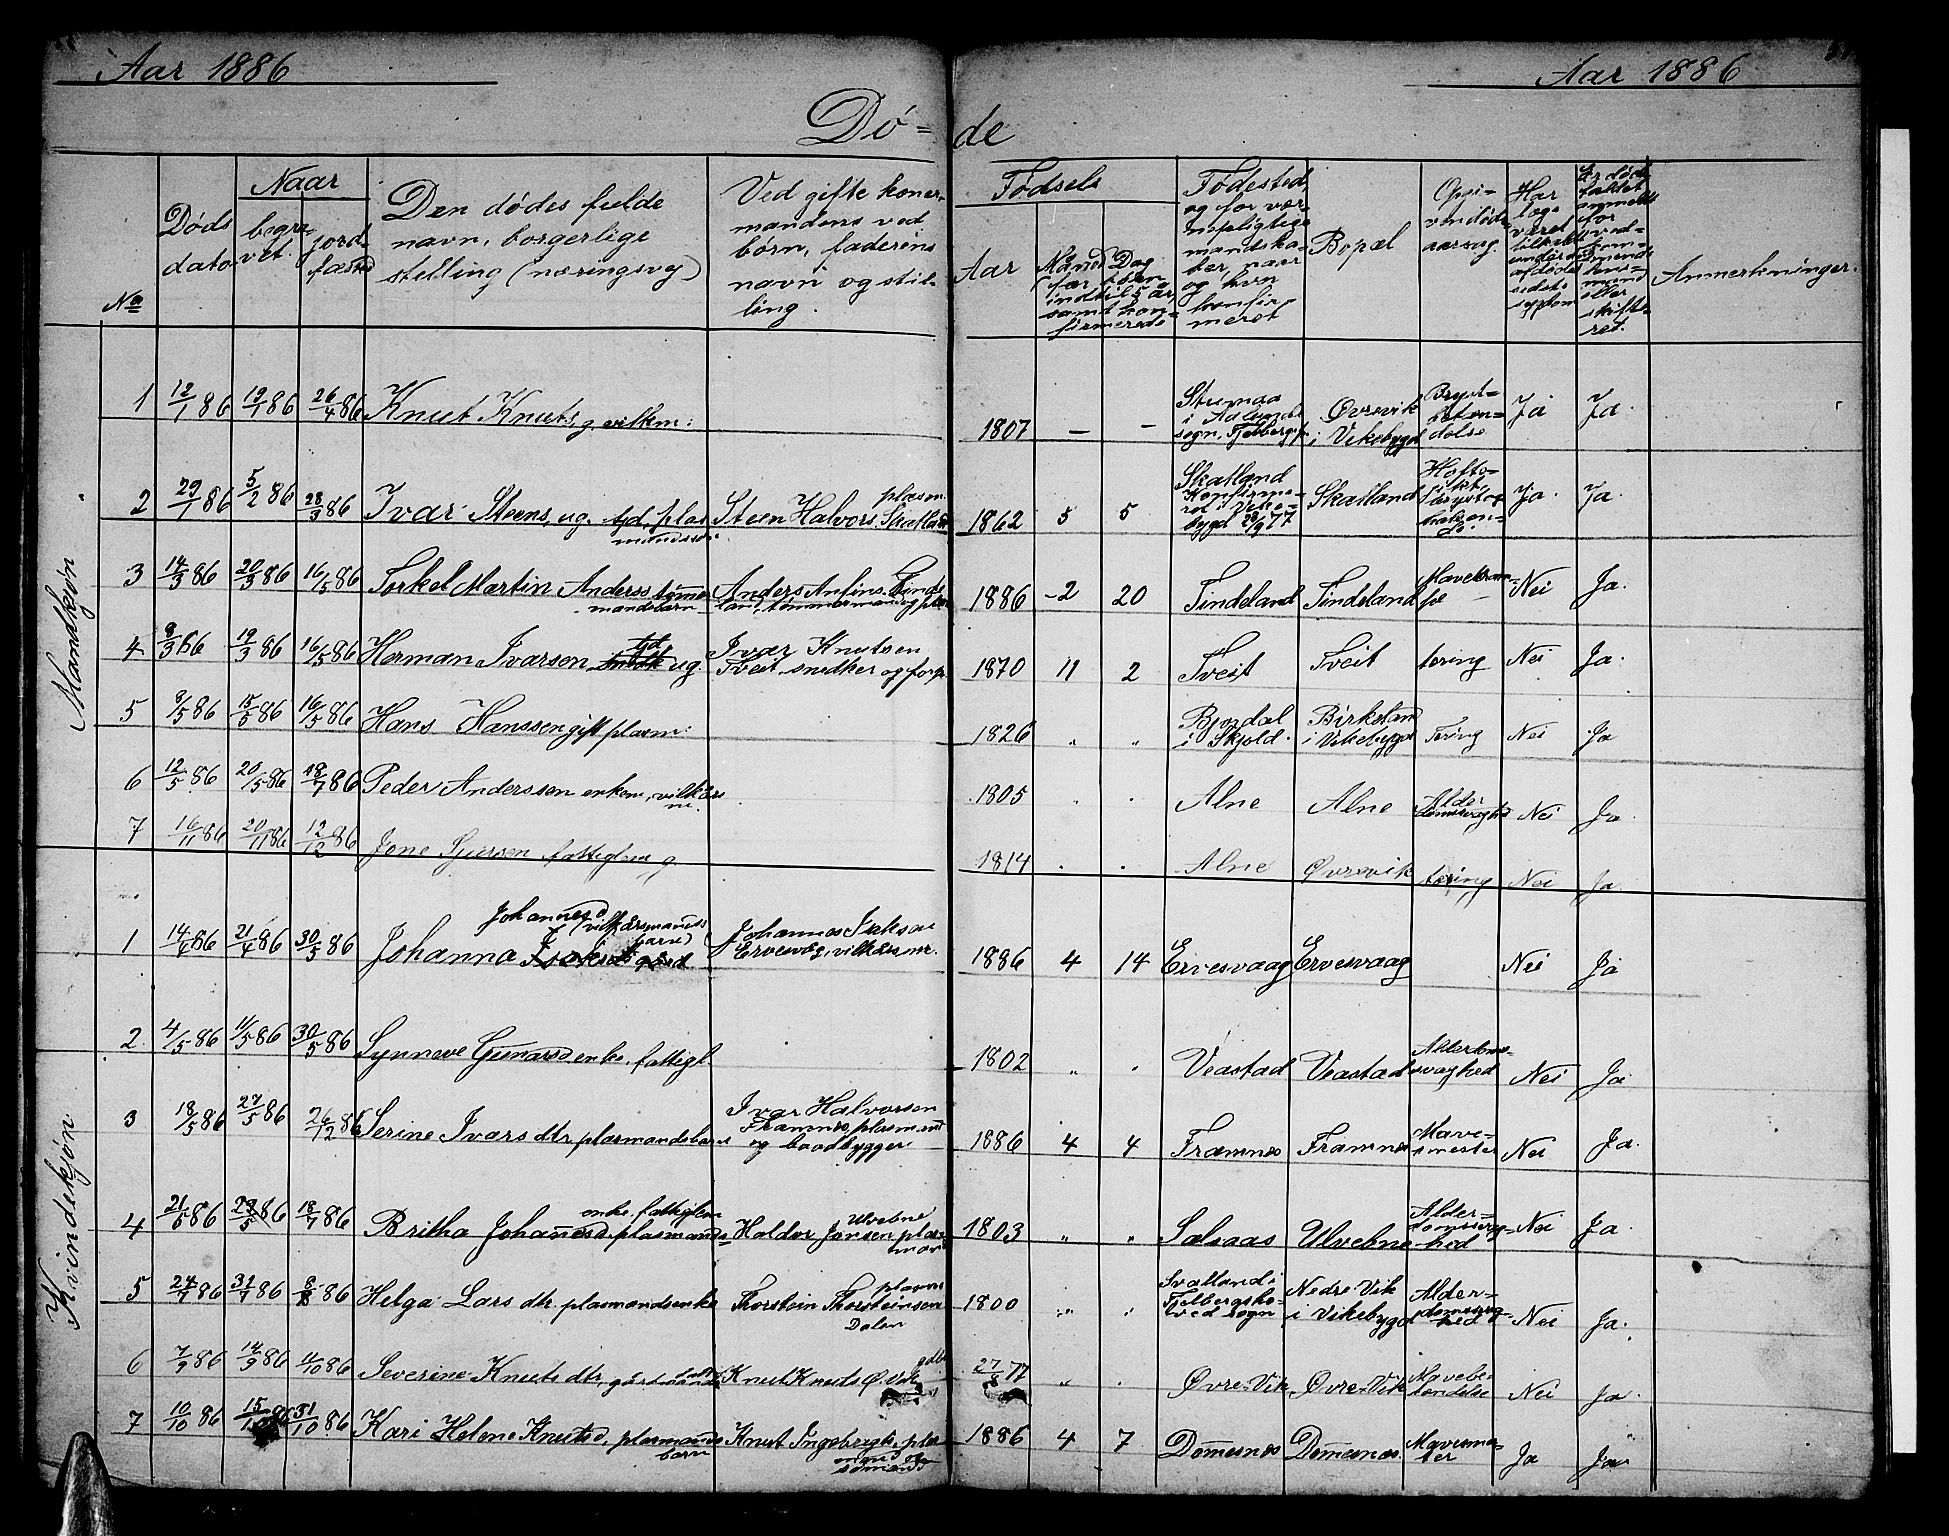 Aar 1886
Aar 1886
Dö=
de
Naar
Döds
dato
begra-
vet.
jord-
fæsted
No
Den dödes fulde
navn, borgerlige
stilling (næringsvej)
Ved gifte koner,
mandens ved
börn, faderens
navn og stil-
ling.
Födsels
Aar
Födested,
og for vær-
nepligtige
mandska-
ber, naar
og hvor
konfir-
meret
Bopæl
Opgi-
ven döds-
aarsag.
Har
læge
været
Er döds-
faldet
anmeldt
for
skift-
ret.
Anmerkninger.
Mandkjön
1 12/1 86 19/1 86 26/4 86 Knut Knuts, g vilkm:
1807 — — Stumaa
i Aalunds
sogn, Fjelbergspr Övrevik
i Vikebygd Bryst-
beten-
delse Ja Ja.
2 29/1 86 5/2 86 28/3 86 Ivar Steens, ug. tyd, plas
mandssön Steen Halvors. Skatland
plasm.
1862 5 5 Skatland
Konfirme-
ret i Vike-
bygd 23/9 77 Skatland Ja. Ja.
3 14/3 86 20/3 86 16/5 86 Torkel Martin Anderss tömmer
mandsbarn Anders Anfins. Tinde
land, tömmermand og plsm
1886 -2 20 Tindeland Tindeland Mavekram-
pe Nei Ja.
4 9/3 86 19/3 86 16/5 86 Herman Ivarsen tyd, ug. Ivar Knutsen
Tveit snedker og forp.
1870 11 2 Tveit Tveit tæring Nei Ja.
5 8/5 86 15/5 86 16/5 86 Hans Hanssen gift plasm:
1826 „ „ Bjordal
i Skjold. Birkeland
i Vikebygd Tæring Nei Ja
6 12/5 86 20/5 86 18/7 86 Peder Anderssen enkem, vilkårs
m.
1805 Alne Alne Alder
domssvaghed Nei Ja
7 16/11 86 20/11 86 12/12 86 Jone Sjursen fattiglem g
1814 Alne Övrevik tæring Nei Ja
Kvindekjön
1 14/4 86 21/4 86 30/5 86 Johanna
Johannesd
(vilkårsmands
barn) Johannes Isaksen
Ervesvåg, vilkårsm.
1886 4 14 Ervesvaag Ervesvaag Nei Ja
2 4/5 86 11/5 86 30/5 86 Synneve Gunarsd enke, fattigl
1802 „ Veastad Veastad Alderdoms-
svaghed Nei Ja
3 18/5 86 27/5 86 26/12 86 Serine Ivars dtr, plasmandsbarn Ivar Halvorsen
Framnes, plasmand
og baadbygger
1886 4 4 Framnes Framnes Mave-
smerter Nei Ja.
4 21/5 86 29/5 86 18/7 86 Britha Johanesd. plasmands
enke, fattiglem Haldor Jonsen plas-
mand
Ulvebne
1803 „ „ Salsaas Ulvebne Alder-
domssvag-
hed Nei Ja
5 24/7 86 31/7 86 8/8 86 Helga Lars dtr. plasmandsenke Thorstein Thorsteinsen
plasm
Dalen
1800 Svalland i
Fjelbergs ho-
ved sogn Nedre Vik
i Vikebygd Alder-
domssvag-
hed Nei Ja.
6 7/9 86 14/9 86 4/10 86 Severine Knuts dtr, gårdmands Knut Knuts Ö. Vik
gdbr
27/8 77 „ Övre-Vik Övre-Vik Mavebe-
tændelse Nei Ja
7 10/10 86 15/10 86 31/10 86 Kari Helene Knutsd, plasmands
barn Knut Ingebregts, plas
mand og
sömand
1886 4 7 Domesnes Domesnes Mavesmer-
ter Ja Ja